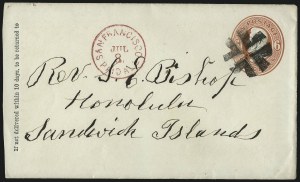 If not delivered within 10 days, to be returned to
SAN FRANCISCO
JUL
8
CAL
Rev. S. E. Bishop
Honolulu
Sandwich Islands